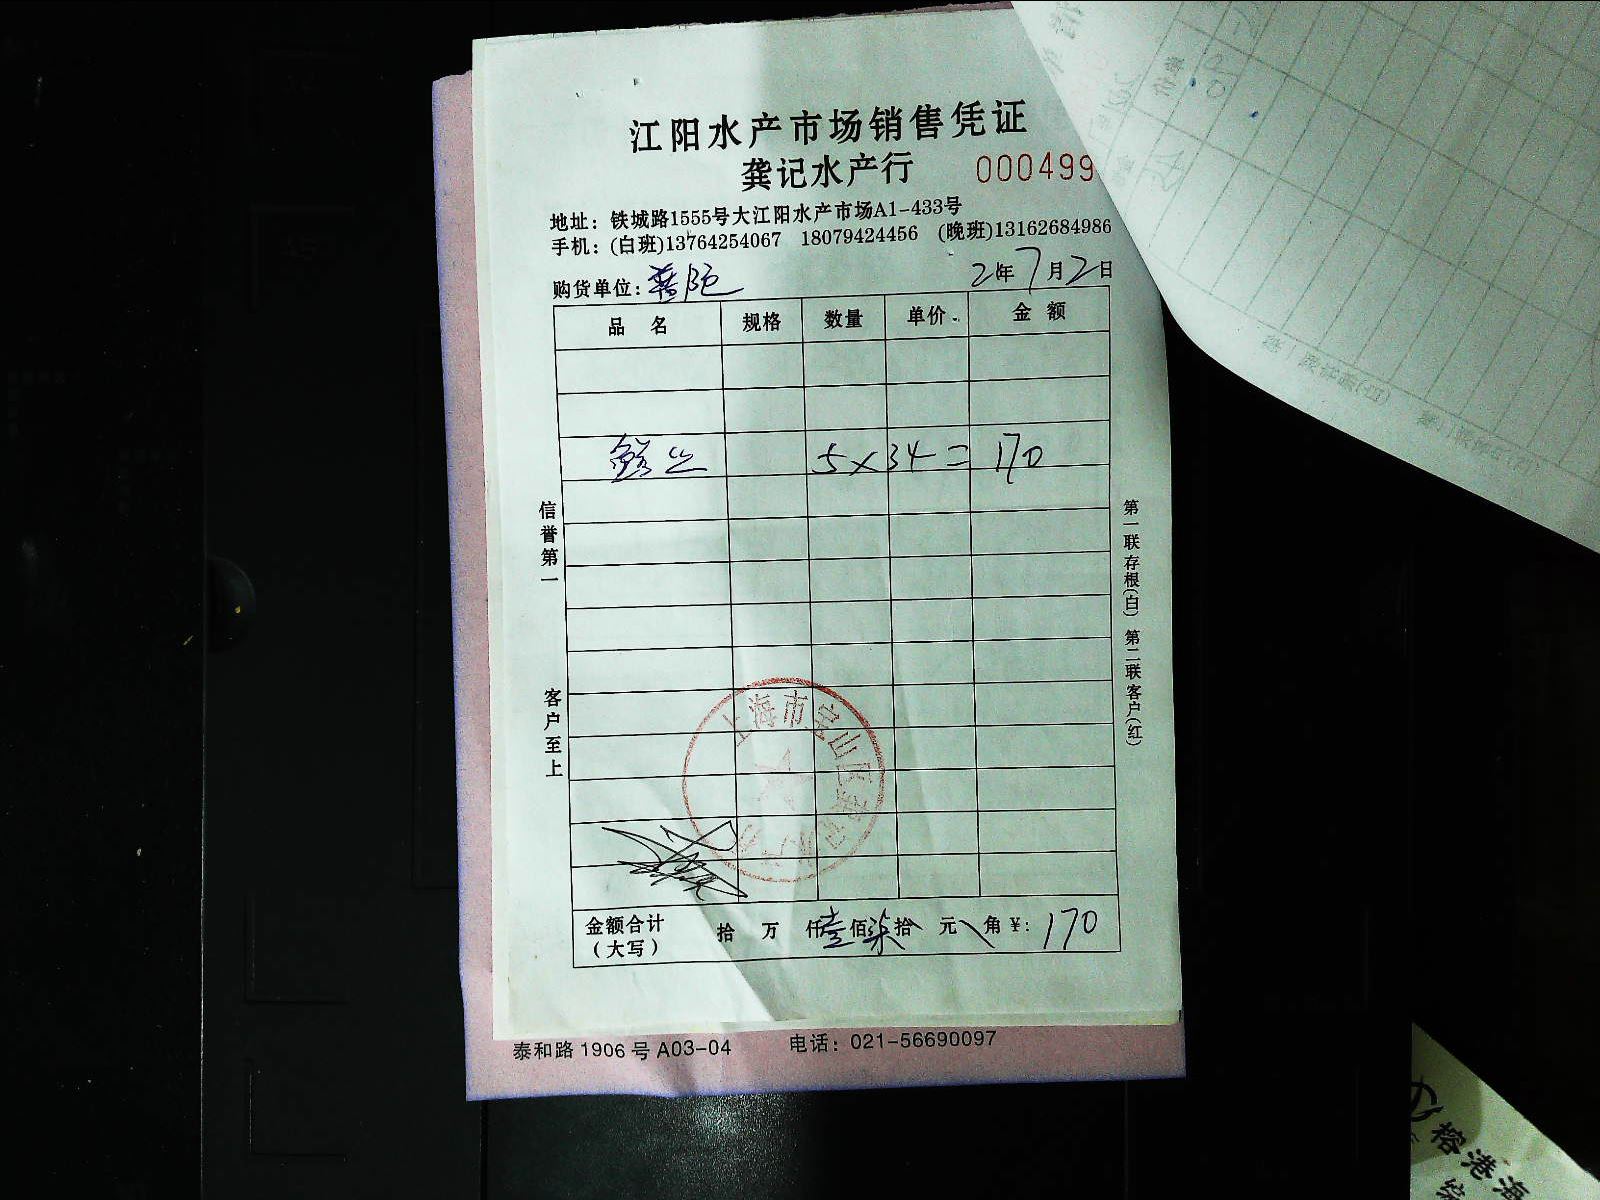 江阳水产市场销售凭证
龚记水产行 000499
地址：铁城路1555号大江阳水产市场A1-433号
手机：(白班)13764254067 18079424456 (晚班)13162684986
购货单位： 21年7月2日
品 名 规格 数量 单价 金 额
5×34= 170
信誉第一
客户至上
第一联存根(白) 第二联客户(红)
上海市宝山区
金额合计 拾 万 仟壹佰柒拾 元 角 ¥: 170
(大写)
泰和路 1906 号 A03-04 电话：021-56690097
榕港海